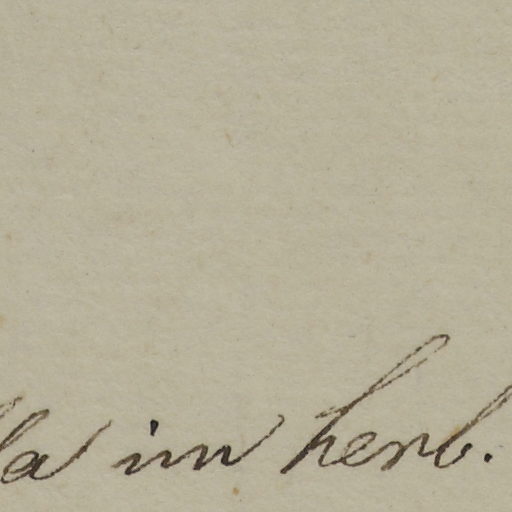 la im herb.